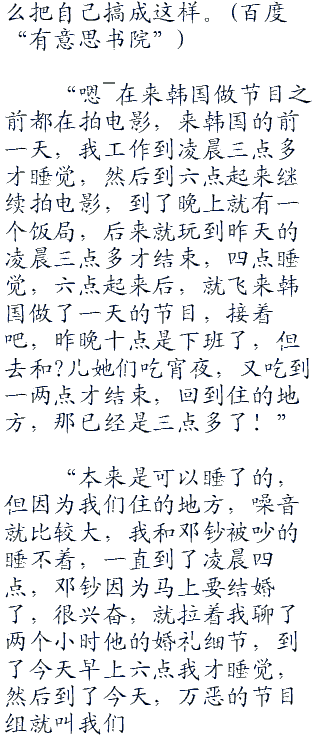 么把自己搞成这样。(百度
“有意思书院”)
“嗯¯在来韩国做节目之
前都在拍电影，来韩国的前
一天，我工作到凌晨三点多
才睡觉，然后到六点起来继
续拍电影，到了晚上就有一
个饭局，后来就玩到昨天的
凌晨三点多才结束，四点睡
觉，六点起来后，就飞来韩
国做了一天的节目，接着
吧，昨晚十点是下班了，但
去和?儿她们吃宵夜，又吃到
一两点才结束，回到住的地
方，那已经是三点多了！”
“本来是可以睡了的，
但因为我们住的地方，噪音
就比较大，我和邓钞被吵的
睡不着，一直到了凌晨四
点，邓钞因为马上要结婚
了，很兴奋，就拉着我聊了
两个小时他的婚礼细节，到
了今天早上六点我才睡觉，
然后到了今天，万恶的节目
组就叫我们